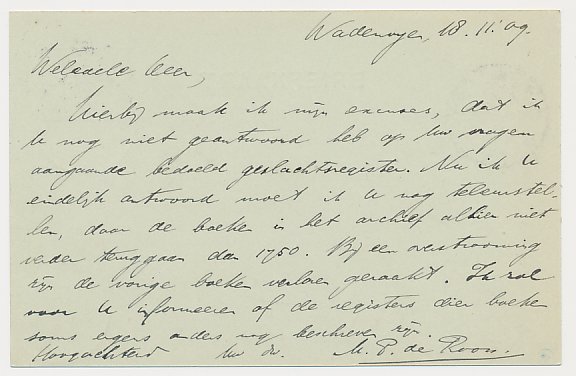 Wadenoyen, 18.11.09.
Weledele Heer,
Hierbij maak ik mijn excuses, dat ik
U nog niet geantwoord heb op Uw vragen
aangaande bedoeld geslachtsregister. Nu ik U
eindelijk antwoord moet ik U nog teleurstel-
len, daar de boeken in het archief alhier niet
verder teruggaan dan 1750. Bij een overstrooming
zijn de vorige boeken verloren geraakt. Ik zal
voor U informeeren of de registers dier boeken
soms ergens anders nog beschreven zijn.
Hoogachtend Uw dr. M. P. de Roon.